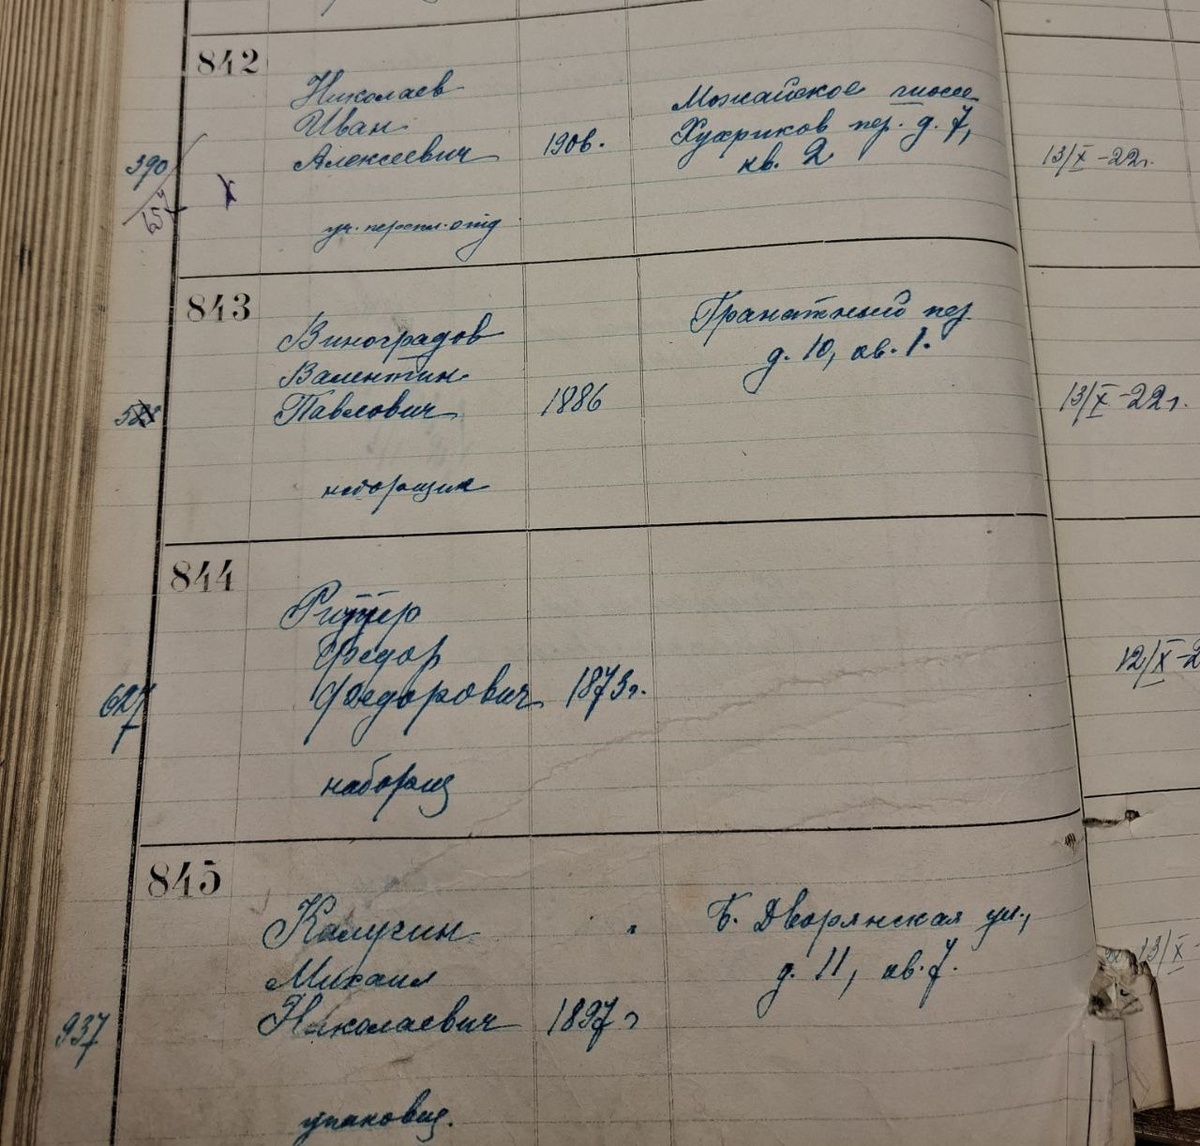 842
Николаев
Иван
Алексеевич
1906.
Можайское шоссе
Кухриков пер. д. 7,
кв. 2
13/X-22г.
390
уч. перепл. отд
843
Виноградов
Валентин
Павлович
1886
Гранатный пер.
д. 10, кв. 1.
13/X-22г.
наборщик
844
Риттер
Федор
Федорович
1873г.
12/X-2
627
наборщ
845
Калугин
Михаил
Николаевич
1897г
Б. Дворянская ул.,
д. 11, кв. 7.
13/X-
937
упаковщ.